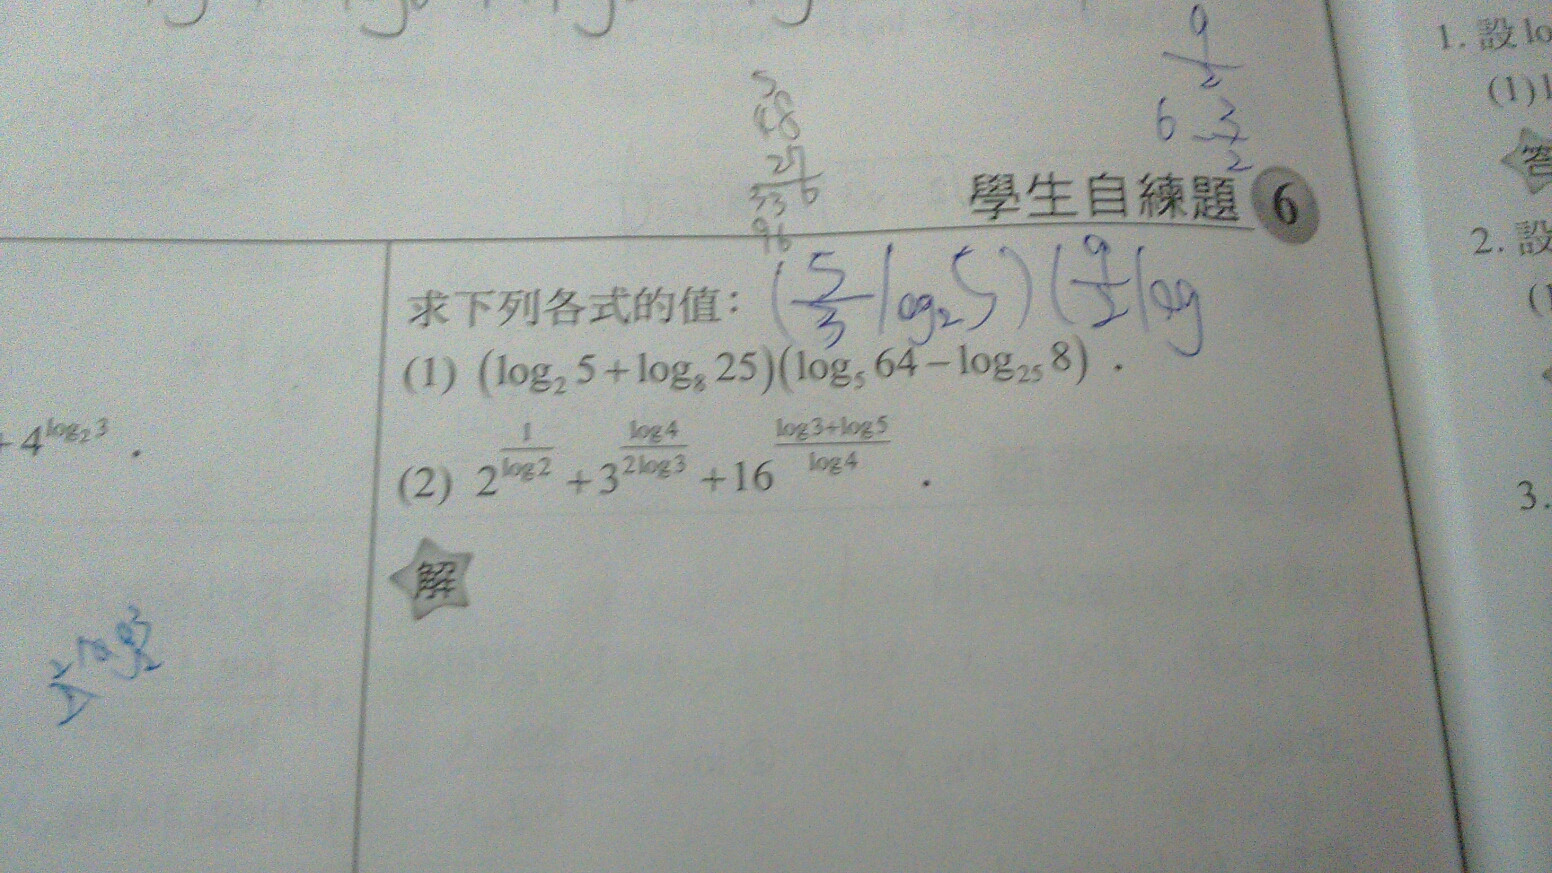 5
48
25
33 6
96
9
2
6 3
2
學生自練題 6
求下列各式的值： (5/3 log₂5)(9/2 log
(1) (log₂ 5 + log₈ 25)(log₅ 64 − log₂₅ 8) .
(2) 2^(1/log2) + 3^(log4/2log3) + 16^((log3+log5)/log4) .
解
+ 4^(log₂3) .
1. 設 lo
(1) l
答
2. 設
(1
3.